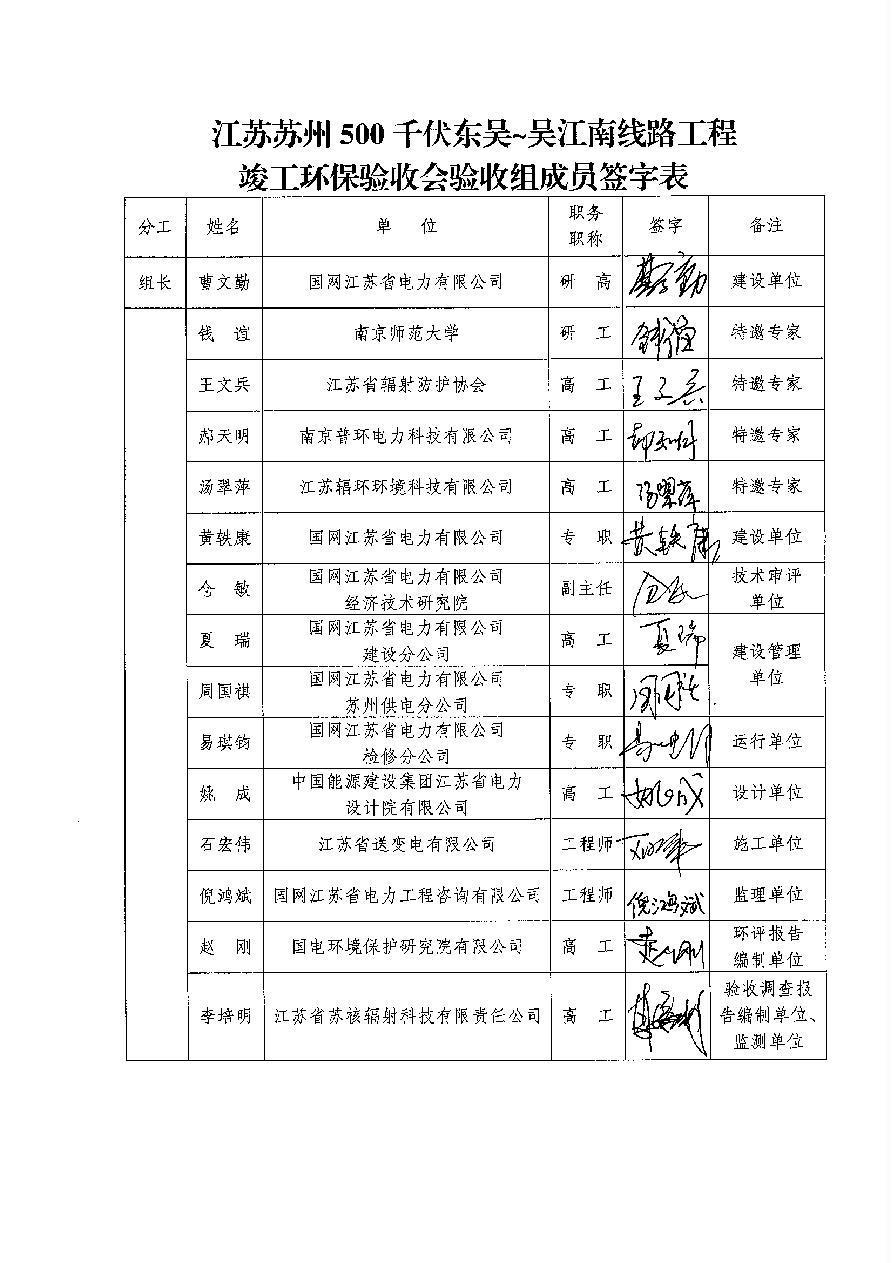 江苏苏州 500 千伏东吴~吴江南线路工程
竣工环保验收会验收组成员签字表
分工 姓名 单 位 职务职称 签字 备注
组长 曹文勤 国网江苏省电力有限公司 研 高 建设单位
钱 谊 南京师范大学 研 工 钱谊 特邀专家
王文兵 江苏省辐射防护协会 高 工 王文兵 特邀专家
郝天明 南京普环电力科技有限公司 高 工 特邀专家
汤翠萍 江苏辐环环境科技有限公司 高 工 汤翠萍 特邀专家
黄轶康 国网江苏省电力有限公司 专 职 黄轶康 建设单位
仓 敏 国网江苏省电力有限公司 副主任 仓敏 技术审评
经济技术研究院 单位
夏 瑞 国网江苏省电力有限公司 高 工 夏瑞 建设管理
建设分公司 单位
周国祺 国网江苏省电力有限公司 专 职
苏州供电分公司
易琪钧 国网江苏省电力有限公司 专 职 运行单位
检修分公司
姚 成 中国能源建设集团江苏省电力 高 工 姚成 设计单位
设计院有限公司
石宏伟 江苏省送变电有限公司 工程师 施工单位
倪鸿斌 国网江苏省电力工程咨询有限公司 工程师 倪鸿斌 监理单位
赵 刚 国电环境保护研究院有限公司 高 工 赵刚 环评报告
编制单位
李培明 江苏省苏核辐射科技有限责任公司 高 工 验收调查报
告编制单位、
监测单位